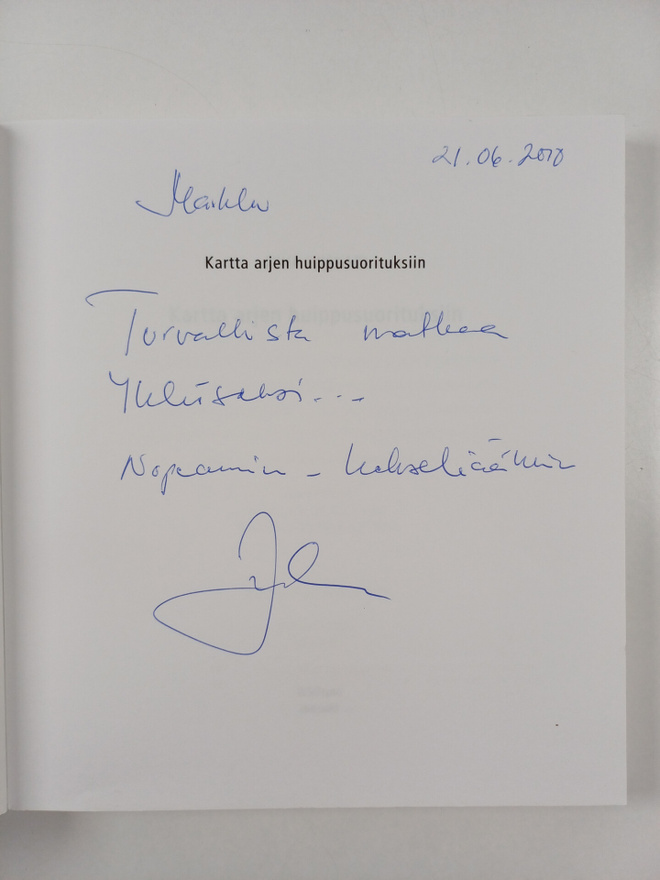 21.06.2010
Markku
Kartta arjen huippusuorituksiin
Turvallista matkaa
Nopeammin – kekseliäämmin